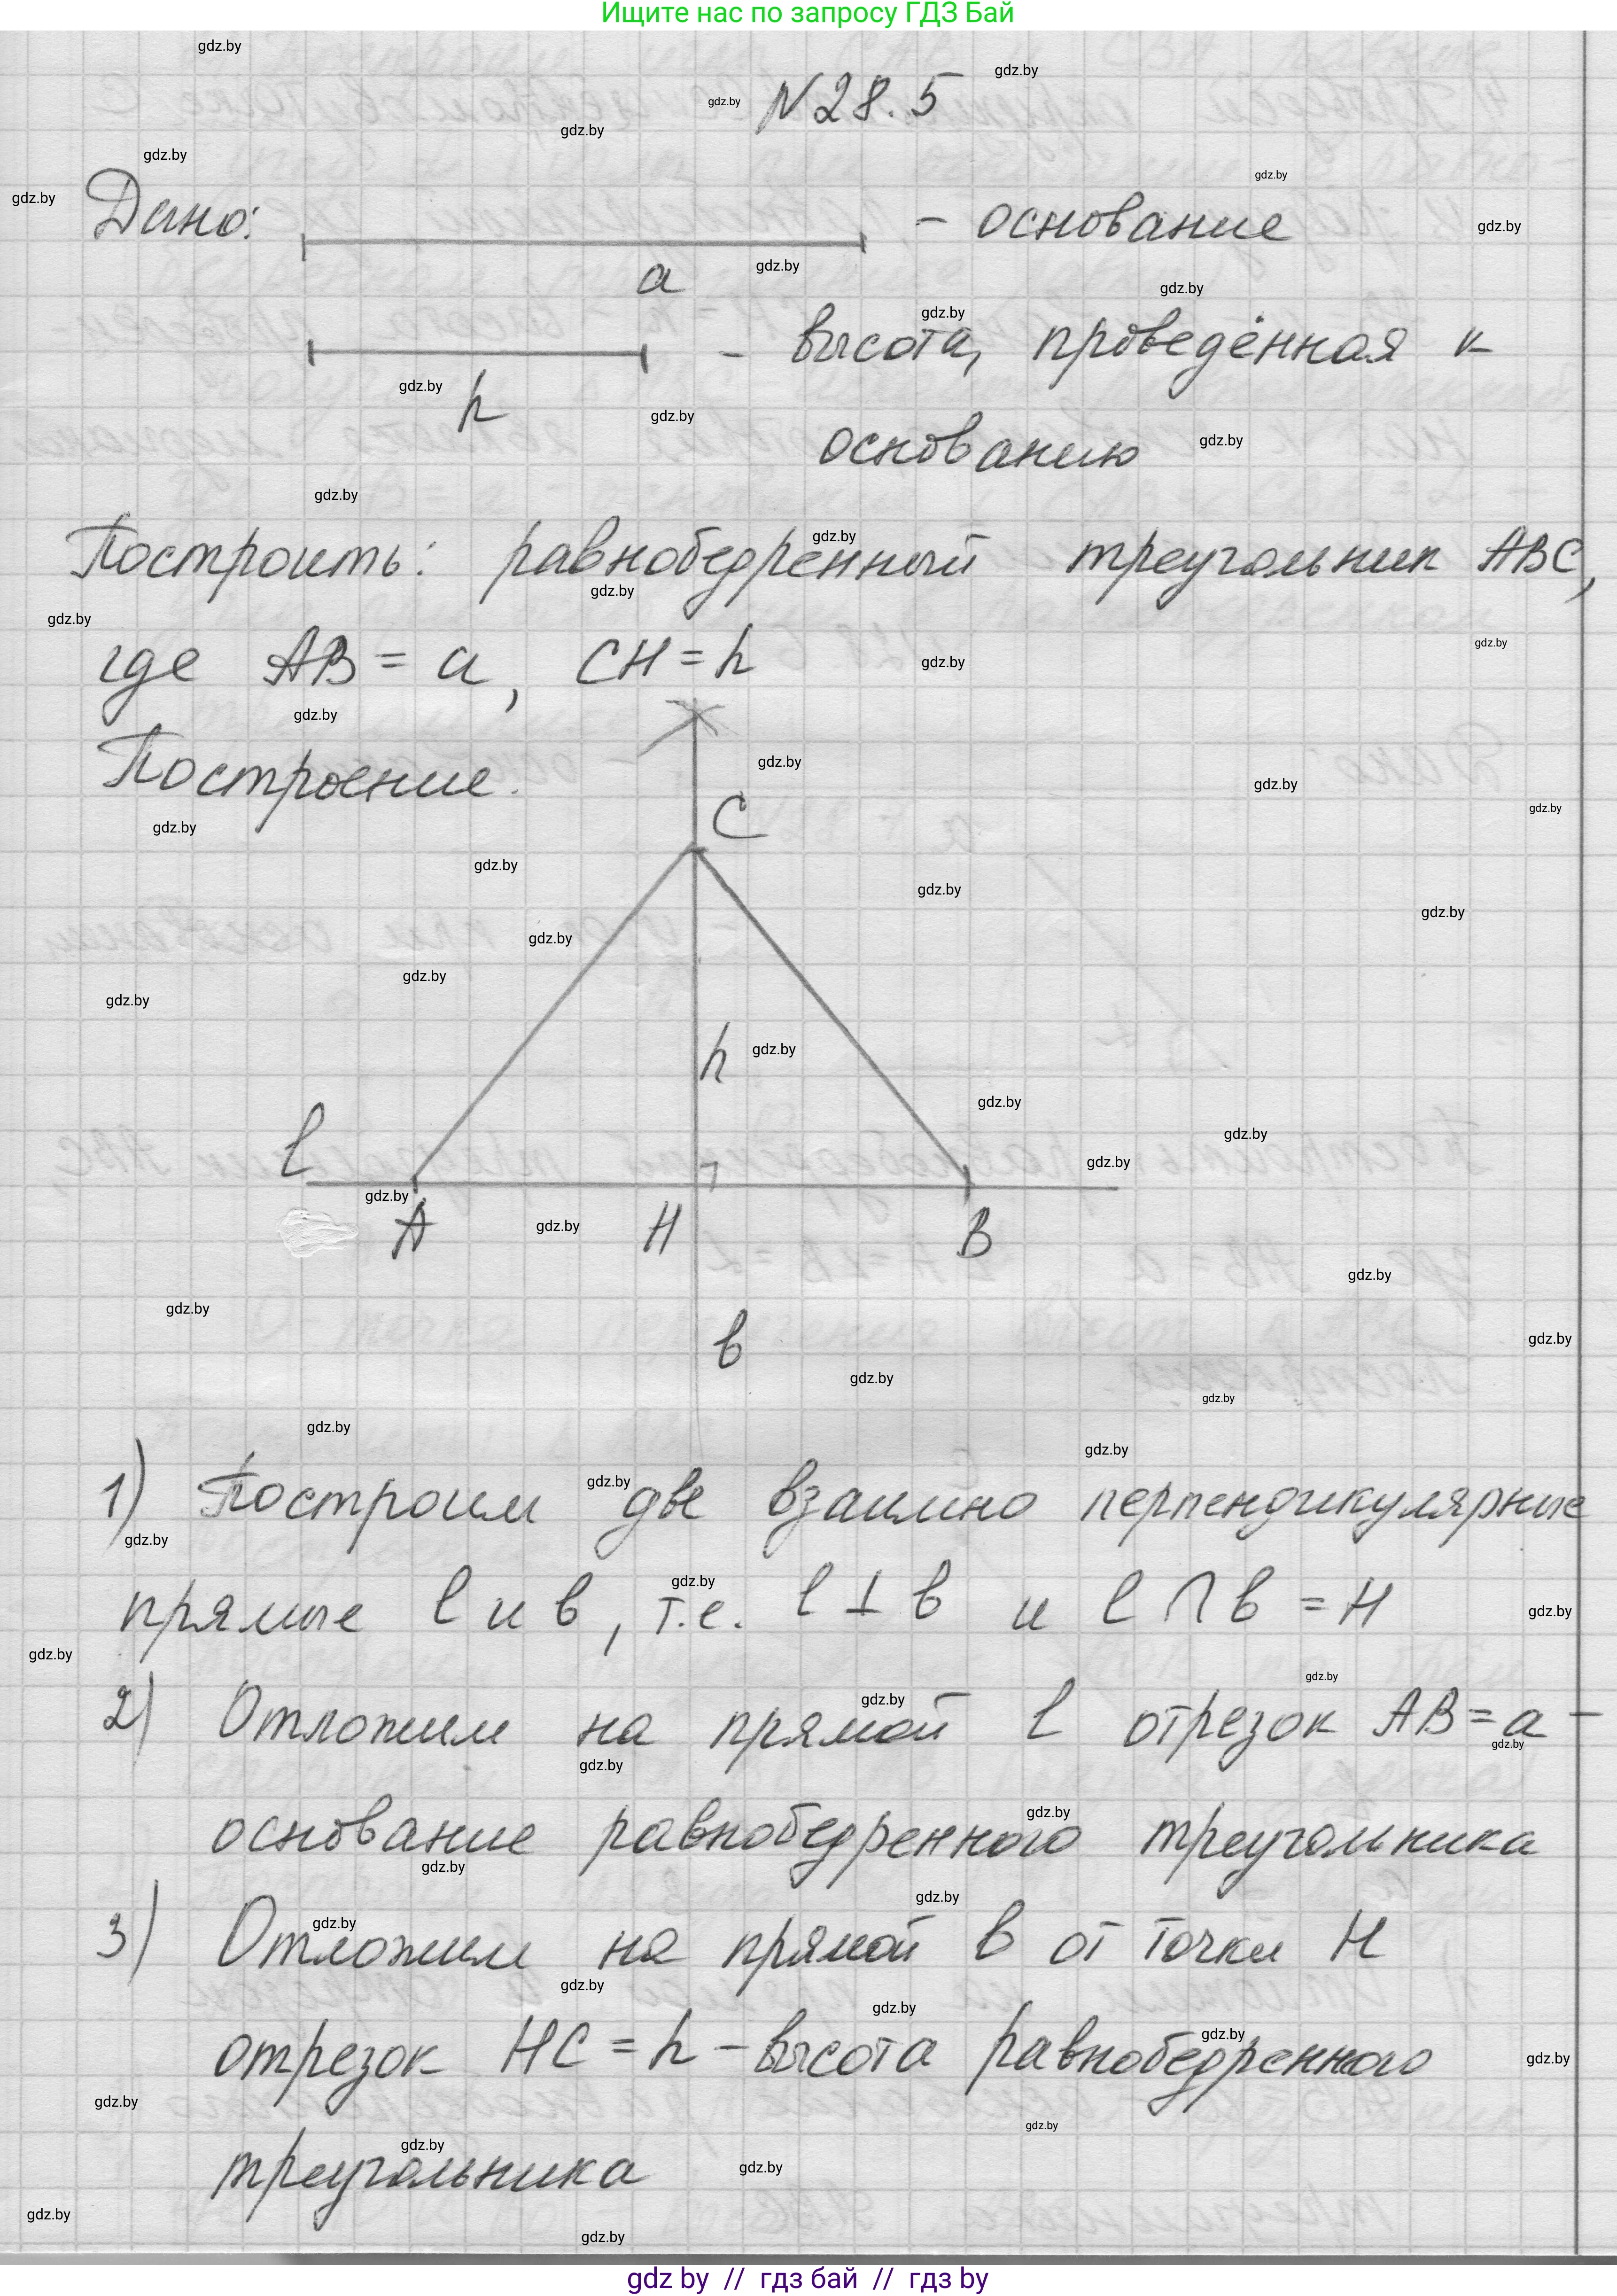 Ищите нас по запросу ГДЗ Бай
N28.5
Дано: - основание
a
- высота, проведённая к
h
основанию
Построить: равнобедренный треугольник ABC,
где AB = a, CH = h
Построение.
C
h
l
A H B
в
1) Построим две взаимно перпендикулярные
прямые l и в, т.е. l ⊥ в и l ∩ в = H
2) Отложим на прямой l отрезок AB = a -
основание равнобедренного треугольника
3) Отложим на прямой в от точки H
отрезок HC = h - высота равнобедренного
треугольника
gdz by // гдз бай // гдз by